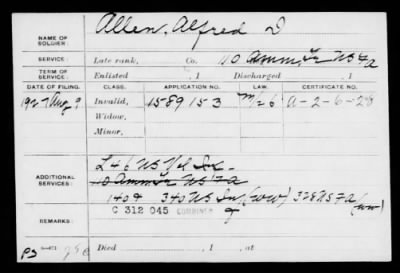 NAME OF SOLDIER: Allen, Alfred D
SERVICE: Late rank, Co. 10 Amm. Tr US FA
TERM OF SERVICE: Enlisted , 1 Discharged , 1
DATE OF FILING. CLASS. APPLICATION NO. LAW. CERTIFICATE NO.
1927 Aug 9 Invalid, 1589153 A-2-6-28
Widow,
Minor,
ADDITIONAL SERVICES: L 46 US Vol Inf
10 Amm Tr US FA
340 US Inf (WW) 328 US FA (WW)
REMARKS: C 312 045 COMBINED
Died , 1 , at